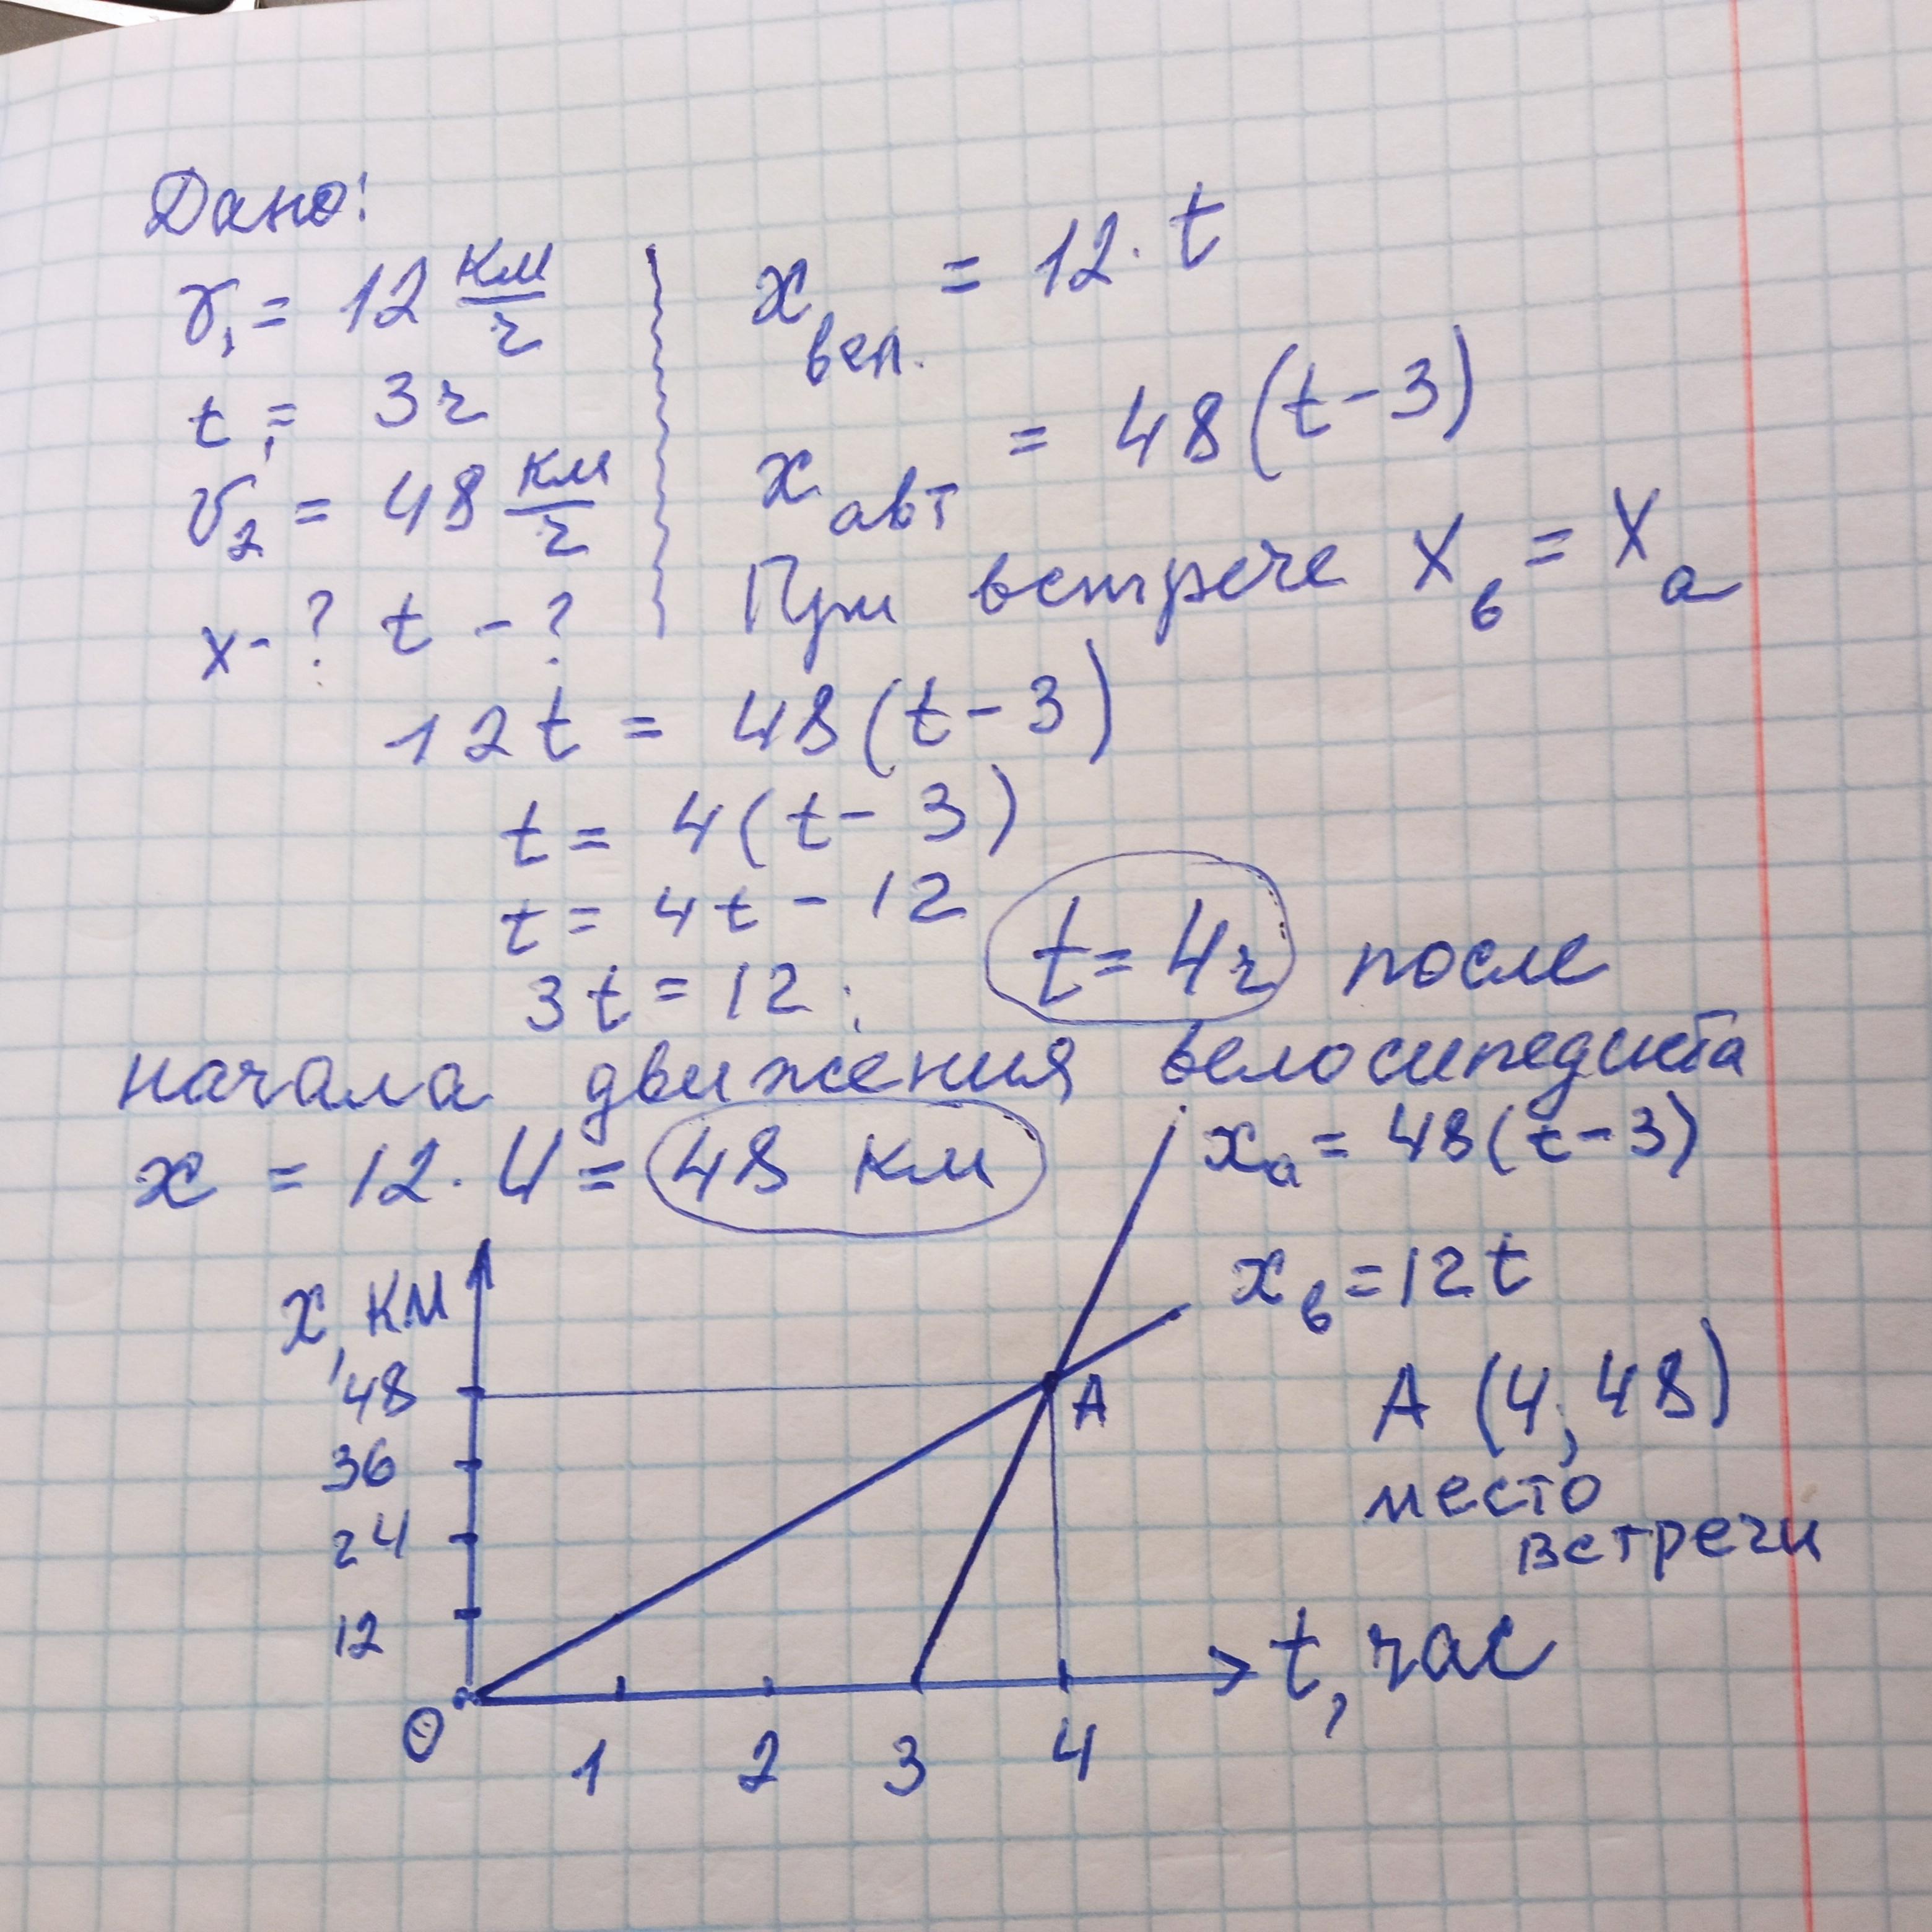 Дано:
v₁ = 12 км/ч
t₁ = 3ч
v₂ = 48 км/ч
x - ? t - ?
x вел. = 12 · t
x авт = 48 (t - 3)
При встрече x в = x а
12t = 48 (t - 3)
t = 4 (t - 3)
t = 4t - 12
3t = 12; t = 4ч после
начала движения велосипедиста
x = 12 · 4 = 48 км
xа = 48(t - 3)
xв = 12t
x, км
48
36
24
12
0
1 2 3 4
t, час
A
A (4; 48)
место
встречи